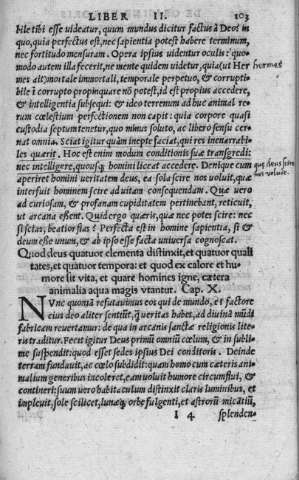 LIBER II. 103
hile tibi esse uideatur, quum mundus dicitur factus à Deo: in
quo, quia perfectus est, nec sapientia potest habere terminum,
nec fortitudo mensuram. Opera ipsius uidentur oculis: quo-
modo autem illa fecerit, ne mente quidem uidetur, quia (ut Her
mes ait) mortale immortali, temporale perpetuo, & corrupti-
bile ĩcorrupto propinquare nõ potest, id est propius accedere,
& intelligentia subsequi: & ideo terrenum ad huc animal re-
rum cœlestium perfectionem non capit: quia corpore quasi
custodia septum tenetur, quo minus soluto, ac libero sensu cer-
nat omnia. Sciat igitur quàm inepte faciat, qui res inenarrabi-
les quærit. Hoc est enim modum conditionis suæ transgredi:
nec intelligere, quousq; homini liceat accedere. Denique cum
aperiret homini ueritatem deus, ea sola scire nos uoluit, quæ
interfuit hominem scire ad uitam consequendam. Quæ uero
ad curiosam, & profanam cupiditatem pertinebant, reticuit,
ut arcana essent. Quid ergo quæris, quæ nec potes scire: nec
si scias, beatior fias? Perfecta est in homine sapientia, si &
deum esse unum, & ab ipso esse facta uniuersa cognoscat.
Quod deus quatuor elementa distinxit, et quatuor quali
tates, et quatuor tempora: et quod ex calore et hu-
more sit vita, et quare homines igne, cætera
animalia aqua magis vtantur. Cap. X.
NVnc quoniã refutauimus eos qui de mundo, et factore
eius deo aliter sentiũt, q̃ ueritas habet, ad diuinã mũdi
fabricam reuertanur: de qua in arcanis sanctæ religionis lite-
ris traditur. Fecit igitur Deus primũ omniũ cœlum, & in subli-
me suspendit: quod esset sedes ipsius Dei conditoris. Deinde
terram fundauit, ac cœlo subdidit: quam homo cum cæteris ani-
malium generibus incoleret, eam uoluit humore circumflui, &
contineri: suum uero habitaculum distinxit claris luminibus, et
impleuit, sole scilicet, lunæq; orbe fulgenti, et astrorũ micãtiũ,
I 4 splenden-
hermes
que deus scire
nos voluit.